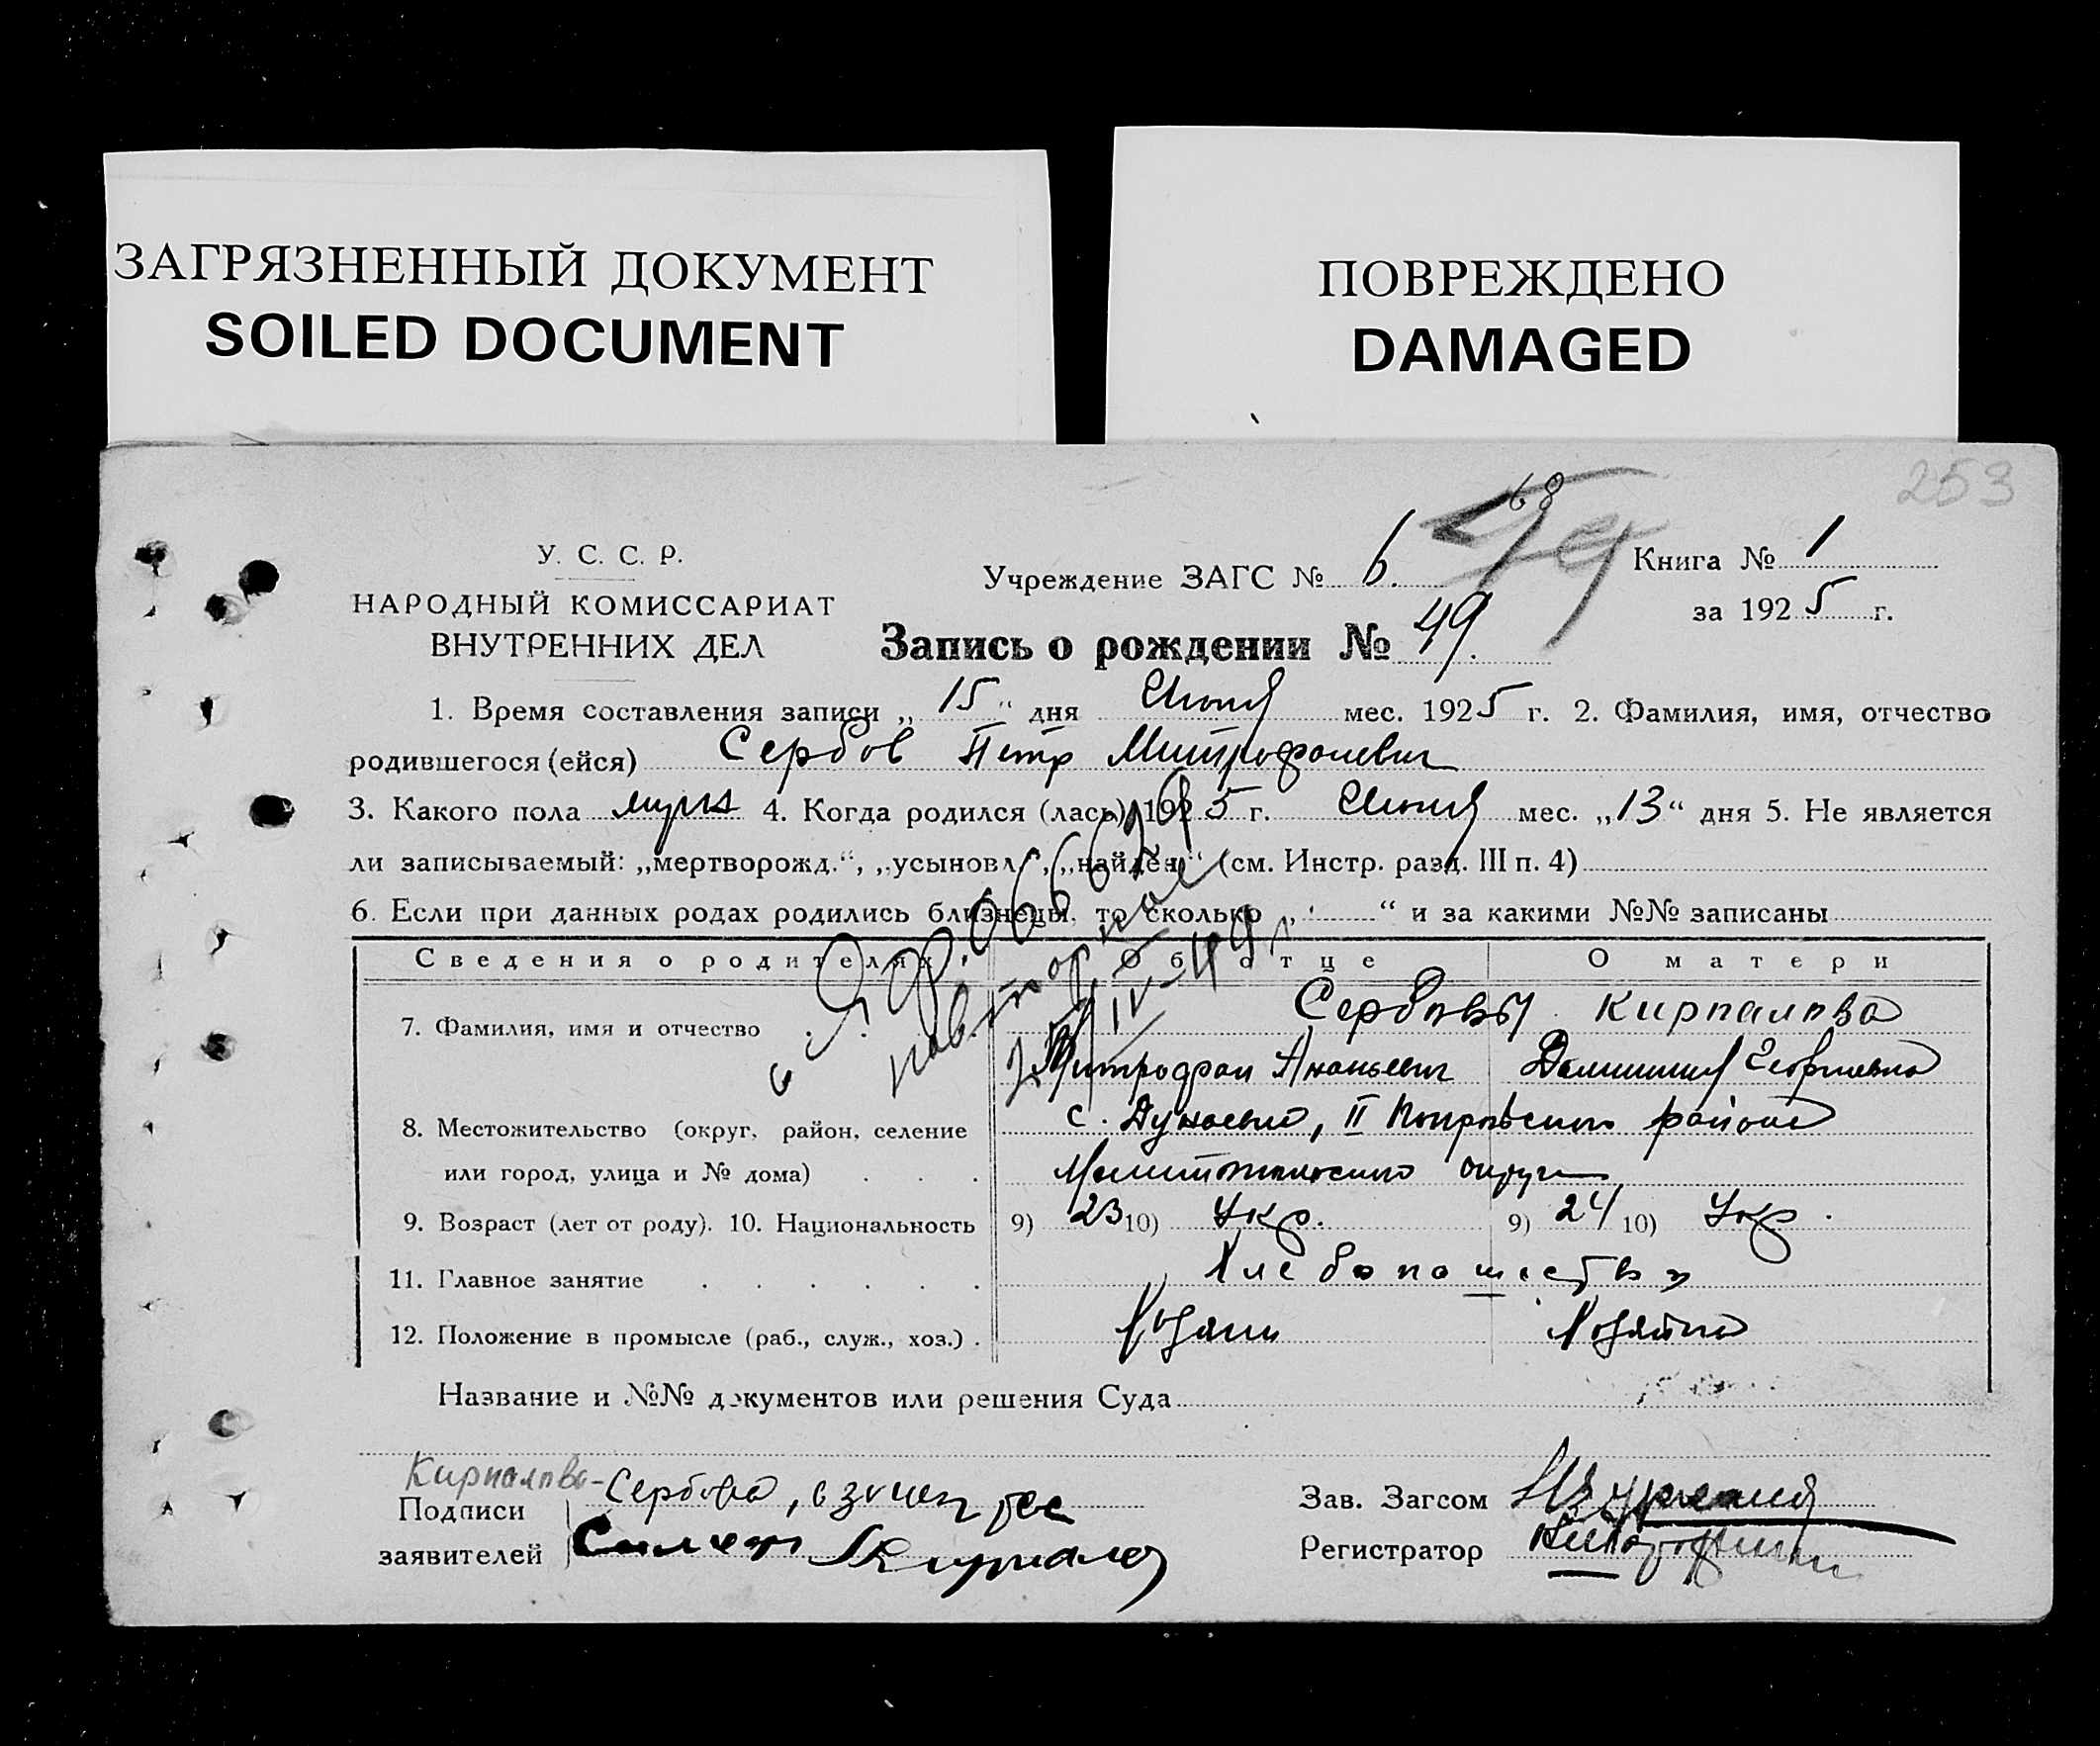 ЗАГРЯЗНЕННЫЙ ДОКУМЕНТ
SOILED DOCUMENT
ПОВРЕЖДЕНО
DAMAGED
253
68
У. С. С. Р.
НАРОДНЫЙ КОМИССАРИАТ
ВНУТРЕННИХ ДЕЛ
Учреждение ЗАГС № 6.
Книга № 1
за 1925 г.
Запись о рождении № 49.
1. Время составления записи „15“ дня Июня мес. 1925 г. 2. Фамилия, имя, отчество
родившегося (ейся) Сербов Петр Митрофаневич
3. Какого пола мужс 4. Когда родился (лась) 1925 г. Июня мес. „13“ дня 5. Не является
ли записываемый: „мертворожд.“, „усыновл.“, „найден“ (см. Инстр. разд. III п. 4)
6. Если при данных родах родились близнецы, то сколько „ “ и за какими №№ записаны
Сведения о родителях Об отце О матери
7. Фамилия, имя и отчество Сербовы Кирпалова
Митрофан Ананьевич Георгиевна
8. Местожительство (округ, район, селение с. Дунаевка, II Покровского района
или город, улица и № дома) . . . Мелитопольского округа
9. Возраст (лет от роду). 10. Национальность 9) 23 10) Укр. 9) 24 10) Укр.
11. Главное занятие . . . . . . Хлебопашество
12. Положение в промысле (раб., служ., хоз.) . Хозяин Хозяйка
Название и №№ документов или решения Суда
Кирпалова-
Подписи Сербова,
заявителей
Зав. Загсом
Регистратор